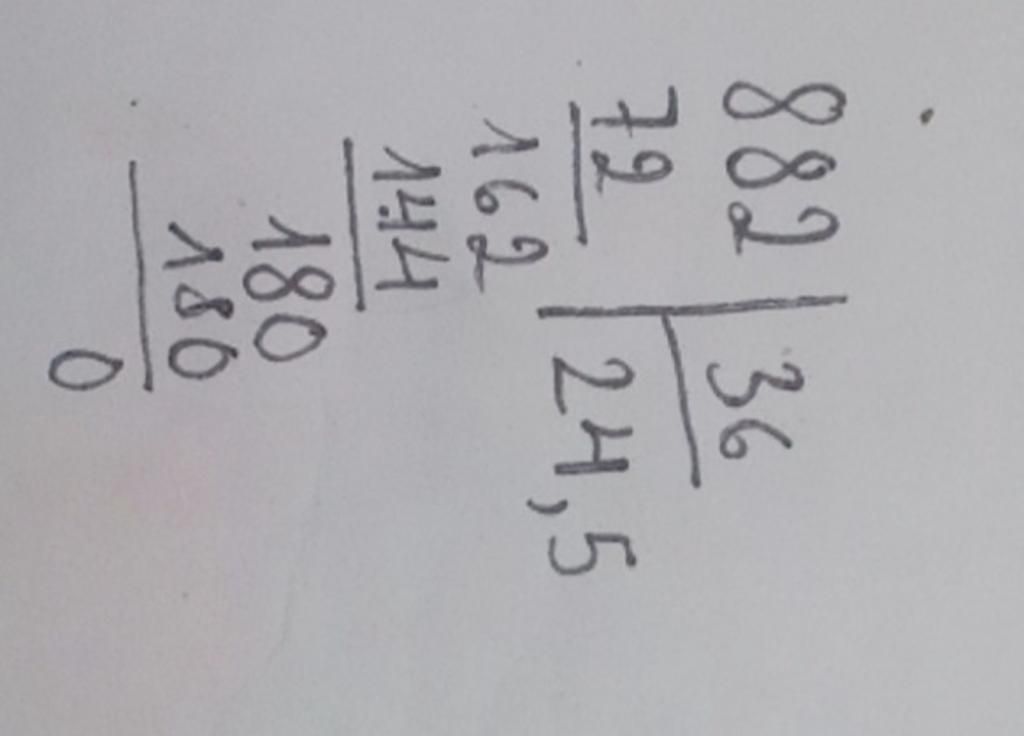 882 36
72 24,5
162
144
180
180
0